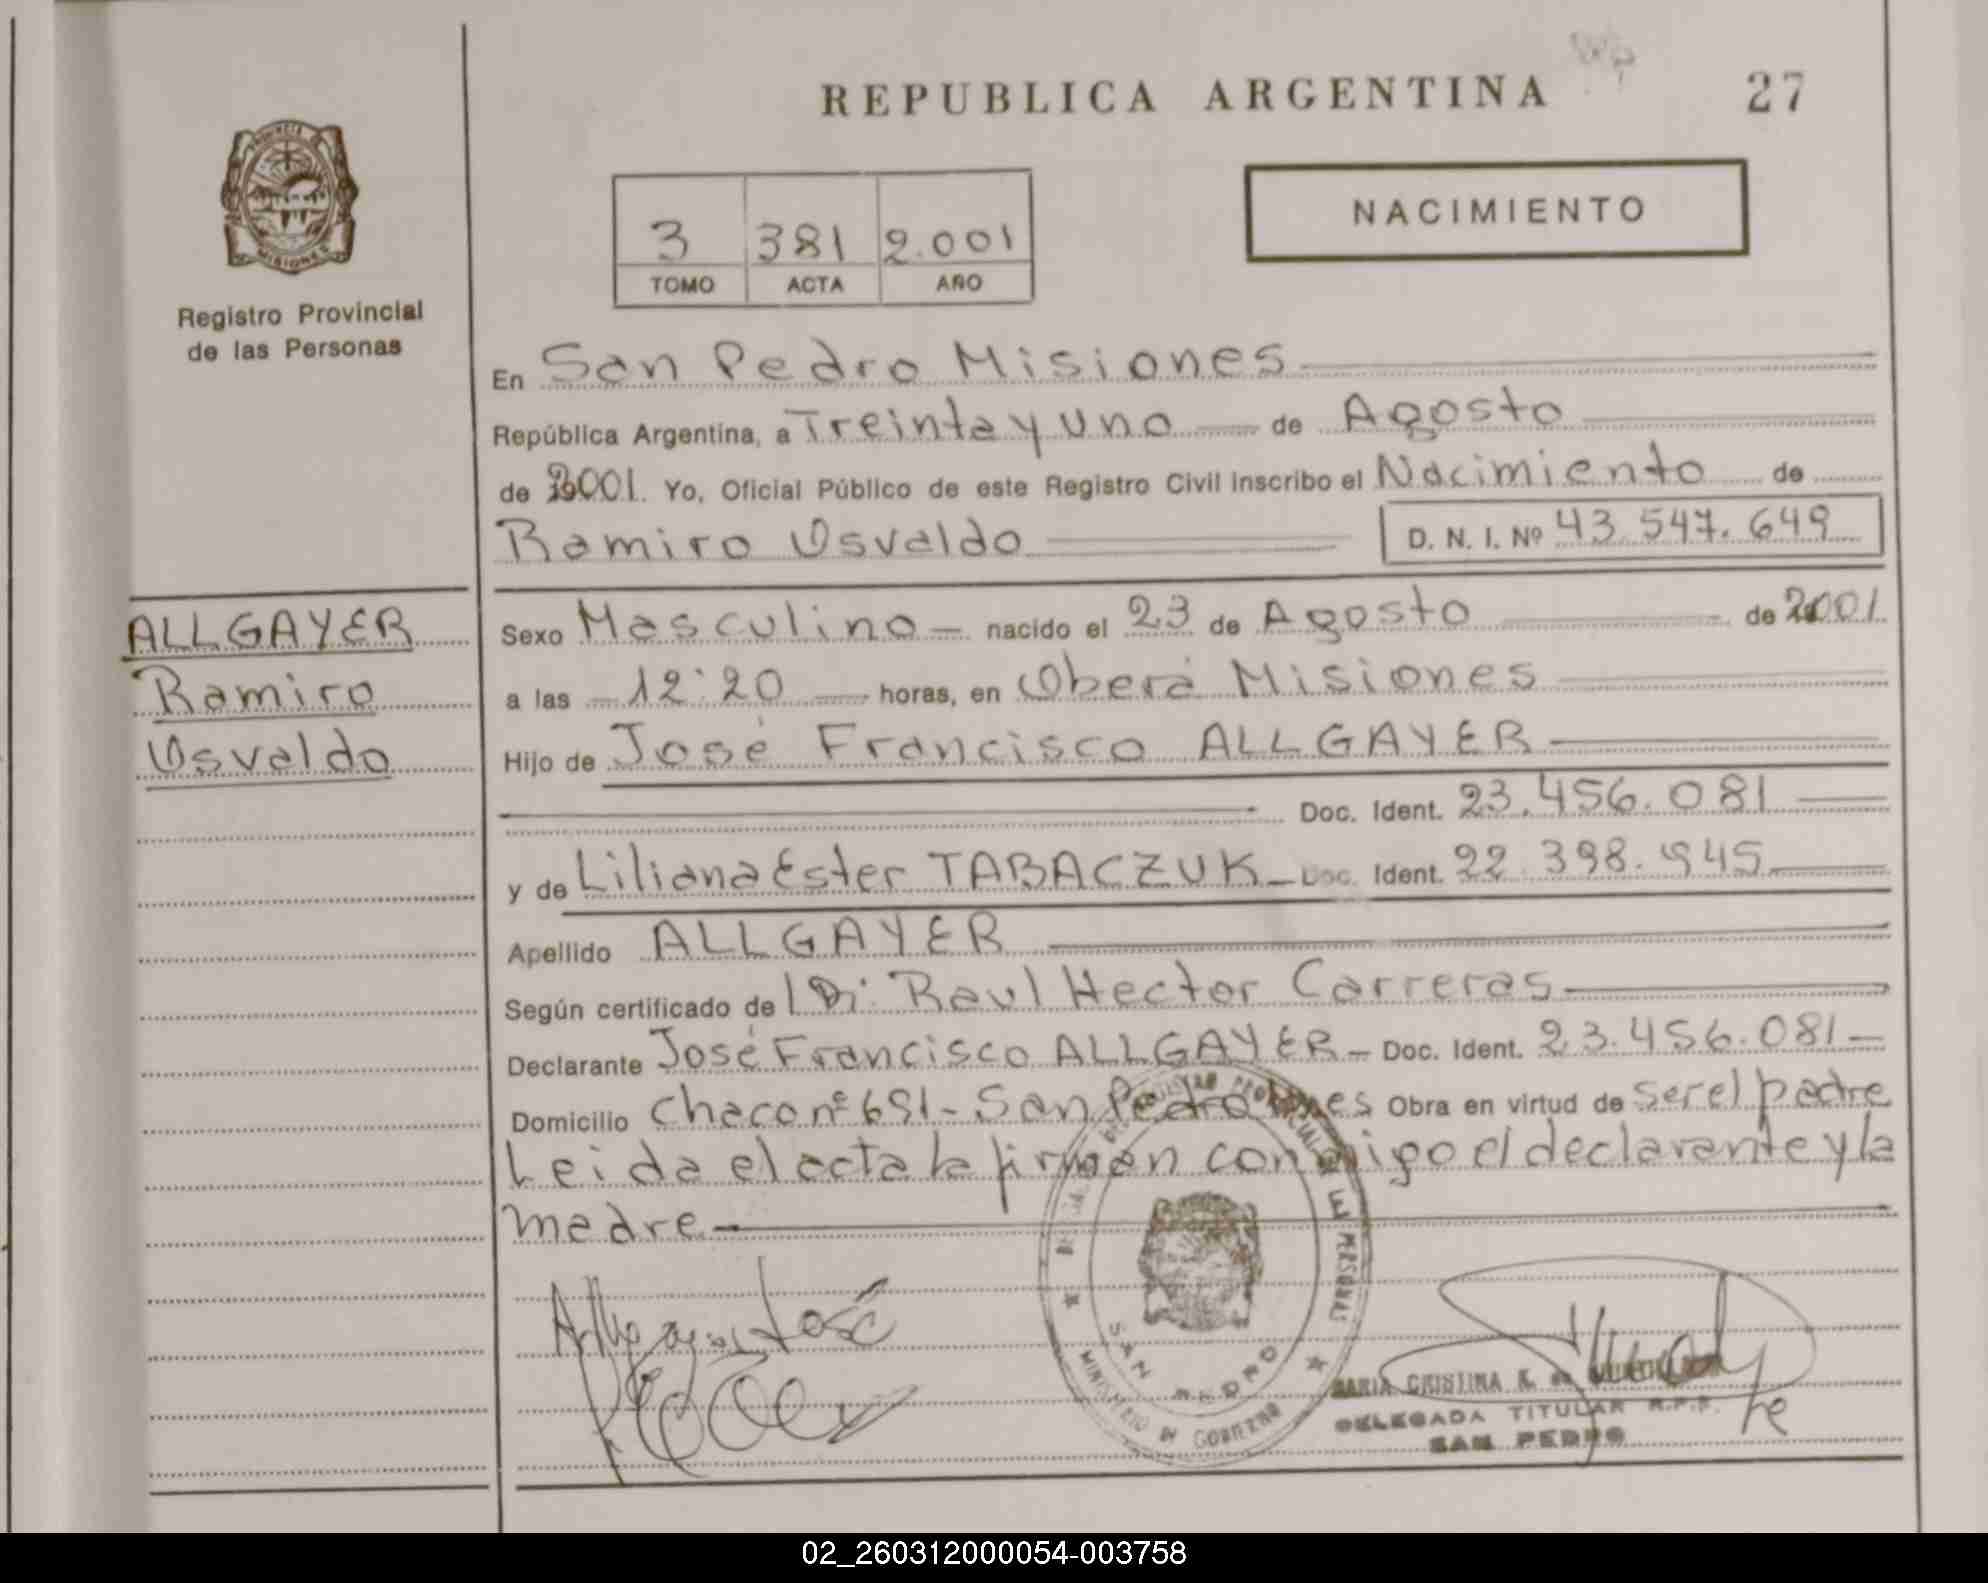 REPUBLICA ARGENTINA
27
PROVINCIA
MISIONES
Registro Provincial
de las Personas
3 381 2.001
TOMO ACTA AÑO
NACIMIENTO
En San Pedro Misiones
República Argentina, a Treinta y uno de Agosto
de 2001. Yo, Oficial Público de este Registro Civil inscribo el Nacimiento de
Ramiro Osvaldo D. N. I. Nº 43.547.649
ALLGAYER
Ramiro
Osvaldo
Sexo Masculino nacido el 23 de Agosto de 2001
a las 12:20 horas, en Oberá Misiones
Hijo de José Francisco ALLGAYER
Doc. Ident. 23.456.081
y de Liliana Ester TABACZUK Doc. Ident. 22.398.945
Apellido ALLGAYER
Según certificado de Raul Hector Carreras
Declarante José Francisco ALLGAYER Doc. Ident. 23.456.081
Domicilio Chaco nº 691 - San Pedro Mnes Obra en virtud de ser el padre
Leida el acta la firman conmigo el declarante y la
madre
Allgayer José
SAN PEDRO
MINISTERIO DE GOBIERNO
PERSONAS
MARIA CRISTINA
DELEGADA TITULAR R.P.P.
SAN PEDRO
02_260312000054-003758